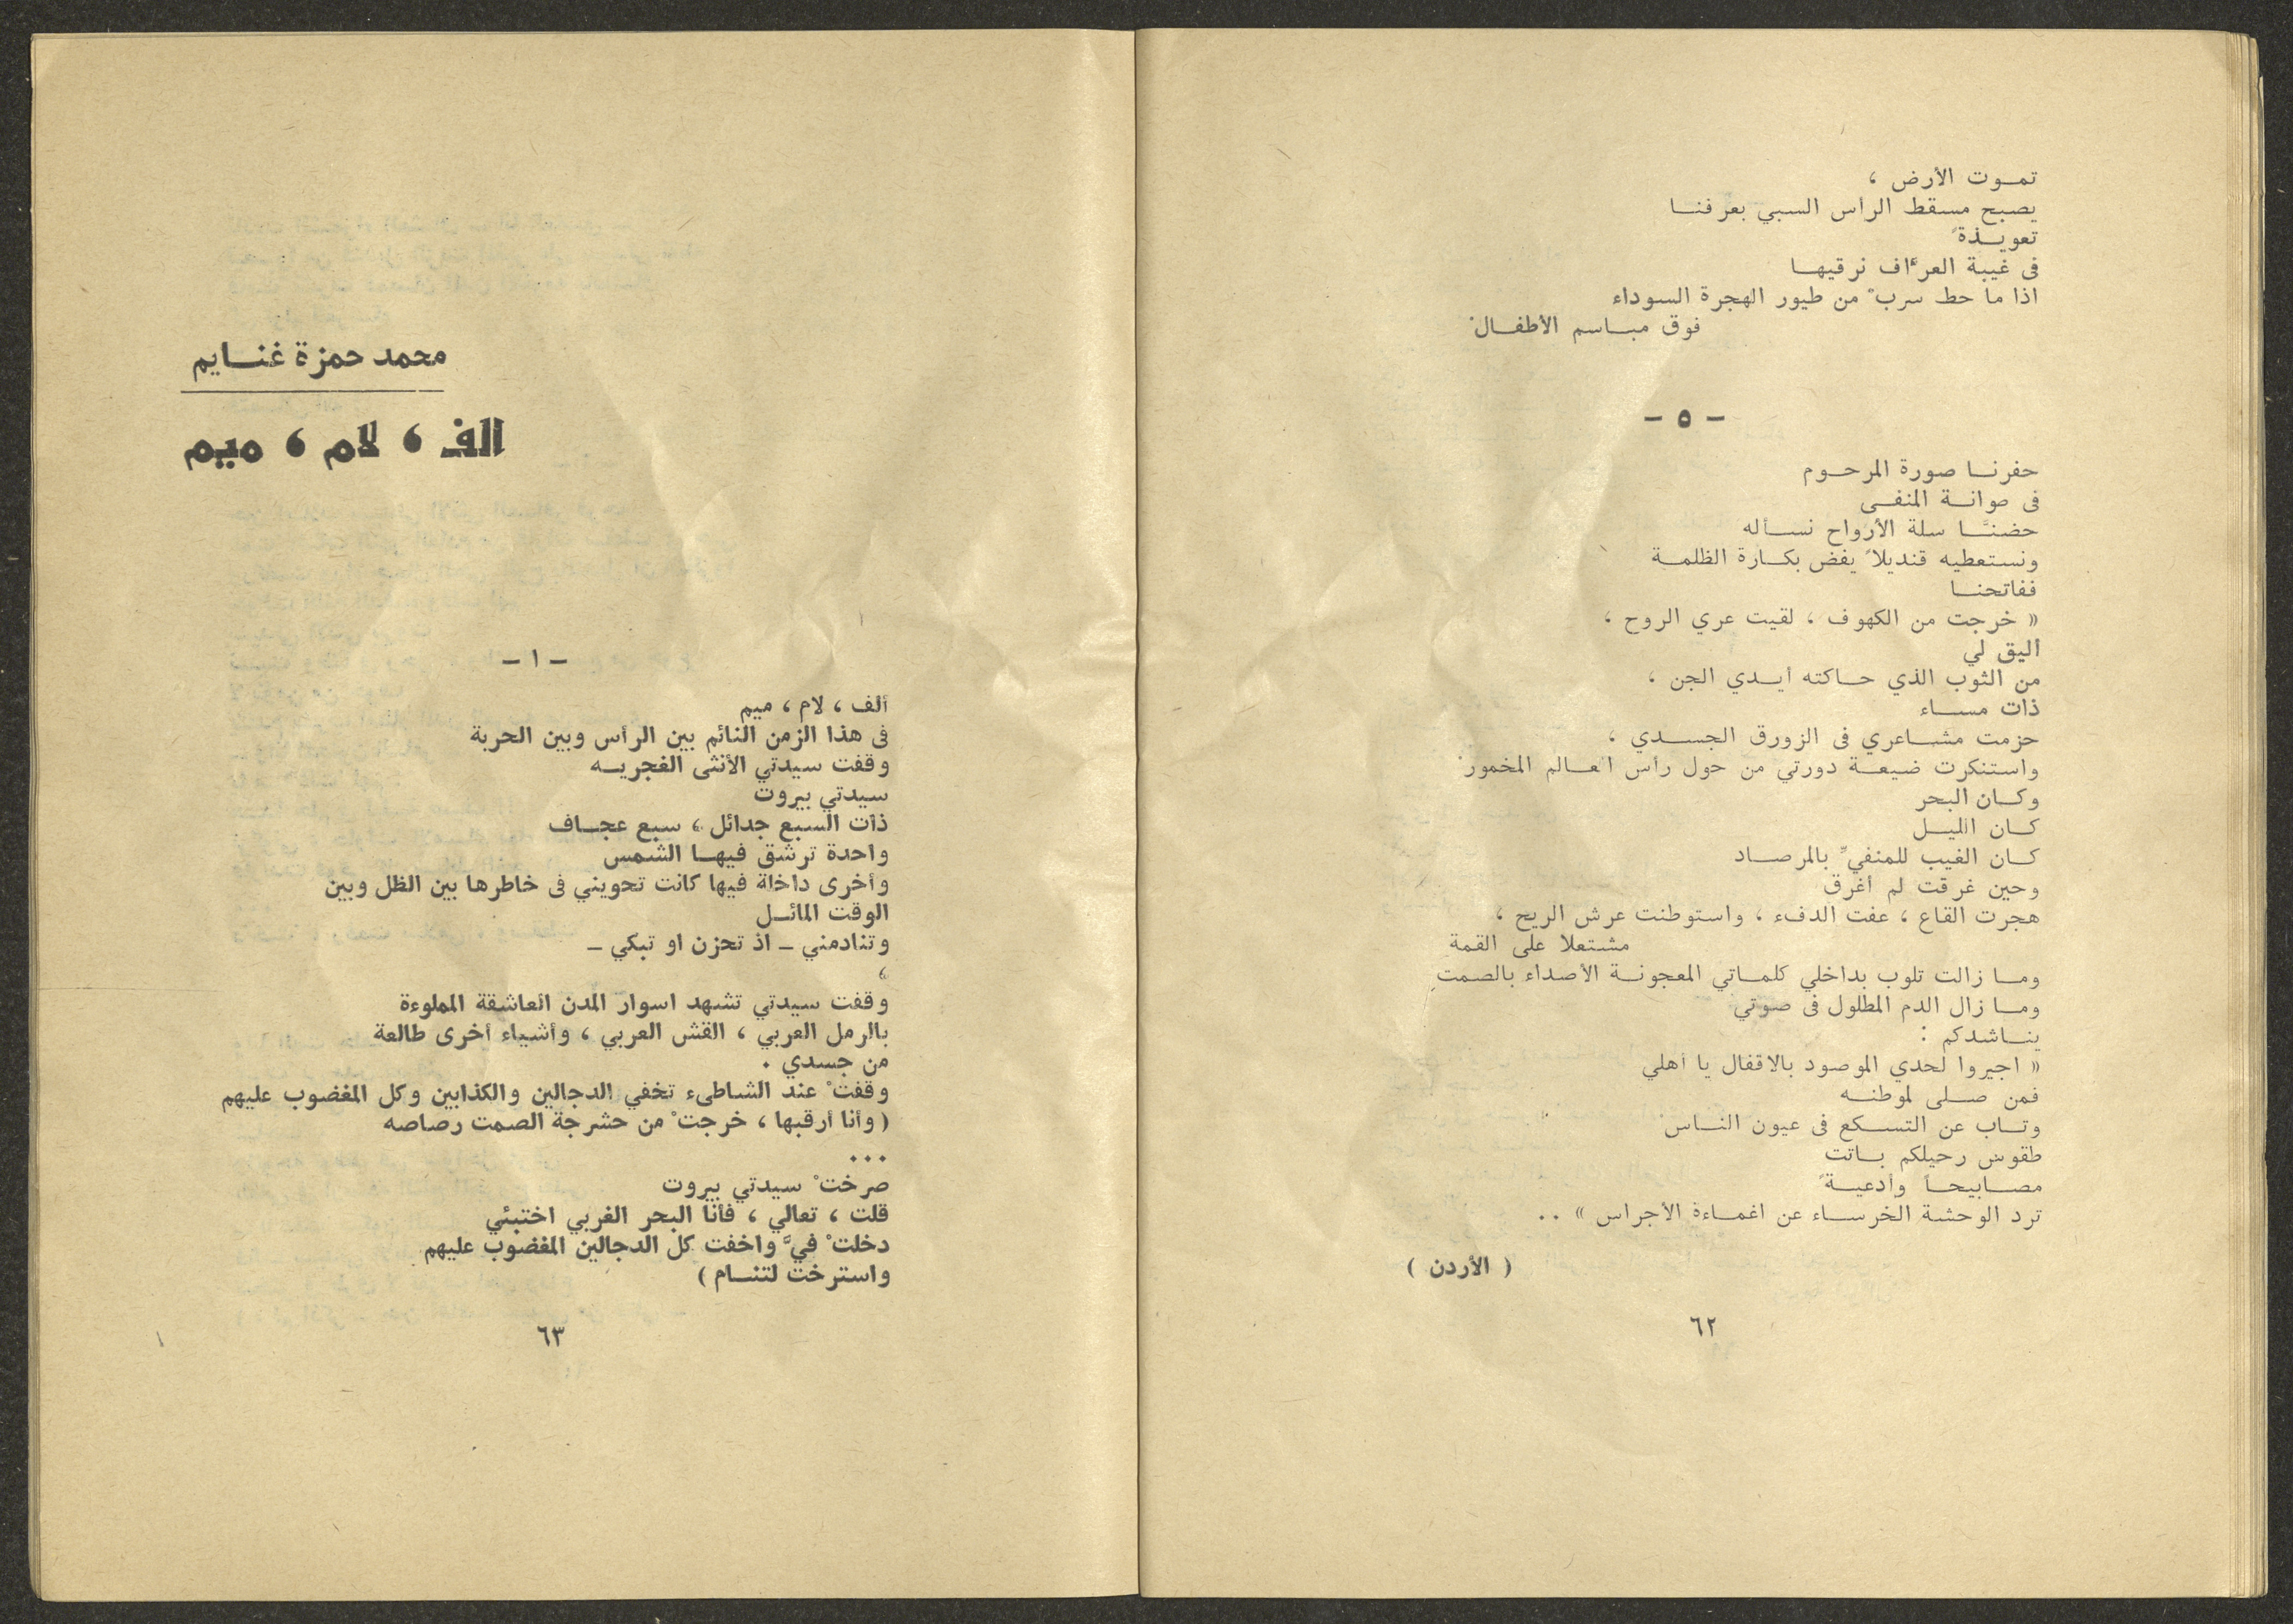 تموت الأرض ،
يصبح مسقط الرأس السبي بعرفنا
تعويذةً
فى غيبة العرَّاف نرقيها
اذا ما حط سربٌ من طيور الهجرة السوداء
فوق مباسم الأطفالْ
- ٥ -
حفرنا صورة المرحوم
فى صوانة المنفى
حضنَّا سلة الأرواح نسأله
ونستعطيه قنديلاً يفض بكارة الظلمة
ففاتحنا
« خرجت من الكهوف ، لقيت عري الروح ،
أليق لي
من الثوب الذي حاكته أيدي الجن ،
ذات مساء
حزمت مشاعري فى الزورق الجسدي ،
واستنكرت ضيعة دورتي من حول رأس العالم المخمورْ
وكان البحر
كان الليل
كان الغيب للمنفيِّ بالمرصاد
وحين غرقت لم أغرق
هجرت القاع ، عفت الدفء ، واستوطنت عرش الريح ،
مشتعلا على القمة
وما زالت تلوب بداخلي كلماتي المعجونة الأصداء بالصمتِ
وما زال الدم المطلول فى صوتي
يناشدكم :
« اجيروا لحدي الموصود بالاقفال يا أهلي
فمن صلى لموطنه
وتاب عن التسكع فى عيون الناسْ
طقوس رحيلكم باتت
مصابيحاً وأدعيةً
ترد الوحشة الخرساء عن اغماءة الأجراس » ..
( الأردن )
٦٢
محمد حمزة غنايم
الف ، لام ، ميم
- ١ -
ألف ، لام ، ميم
فى هذا الزمن النائم بين الرأس وبين الحربة
وقفت سيدتي الأنثى الغجريه
سيدتي بيروت
ذات السبع جدائل ، سبع عجاف
واحدة ترشق فيها الشمس
وأخرى داخلة فيها كانت تحويني فى خاطرها بين الظل وبين
الوقت المائل
وتنادمني - اذ تحزن او تبكي -
،
وقفت سيدتي تشهد اسوار المدن العاشقة المملوءة
بالرمل العربي ، القش العربي ، وأشياء أخرى طالعة
من جسدي .
وقفتْ عند الشاطىء تخفي الدجالين والكذابين وكل المغضوب عليهم
( وأنا أرقبها ، خرجتْ من حشرجة الصمت رصاصه
...
صرختْ سيدتي بيروت
قلت ، تعالي ، فأنا البحر الغربي اختبئي
دخلتْ فيَّ واخفت كل الدجالين المغضوب عليهم
واسترخت لتنام )
٦٣